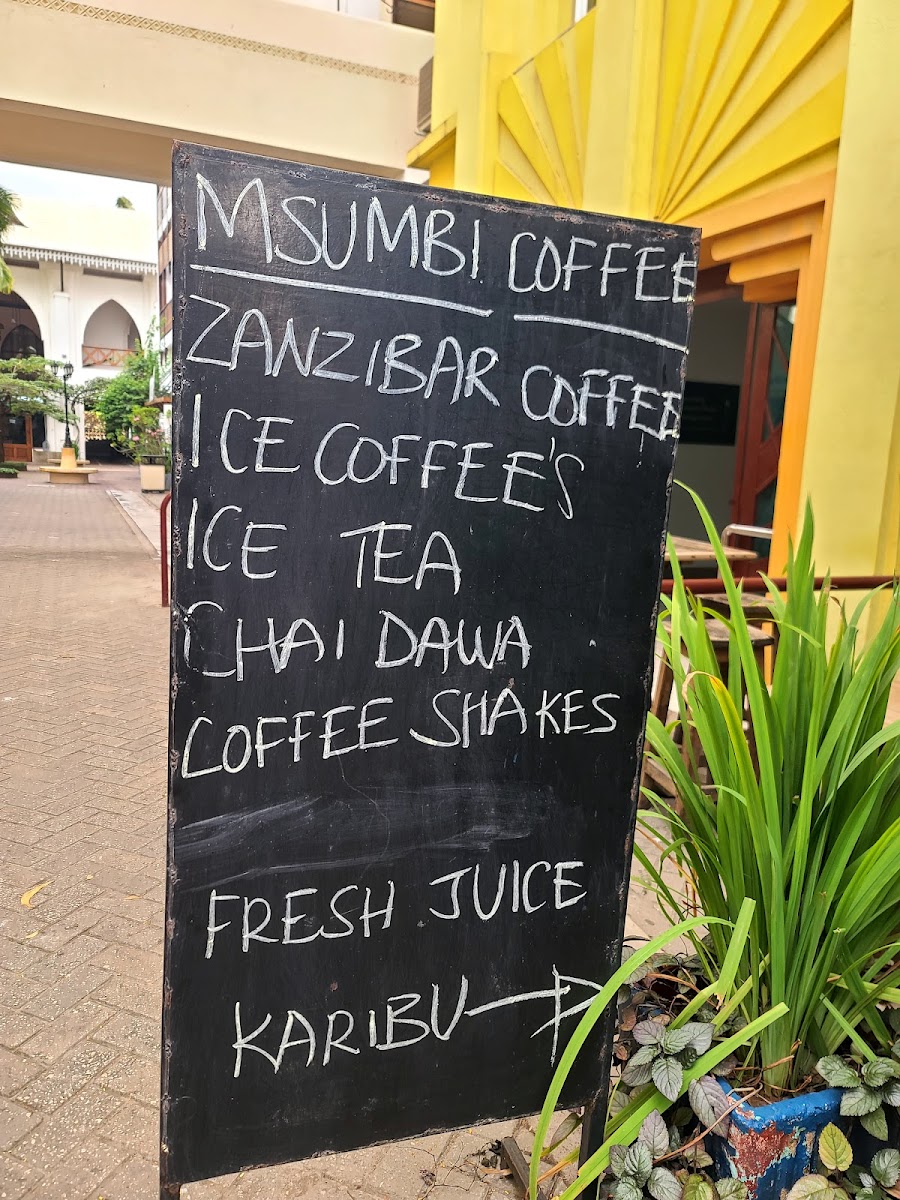 MSUMBI COFFEE
ZANZIBAR COFFEE
ICE COFFEE'S
ICE TEA
CHAI DAWA
COFFEE SHAKES
FRESH JUICE
KARIBU